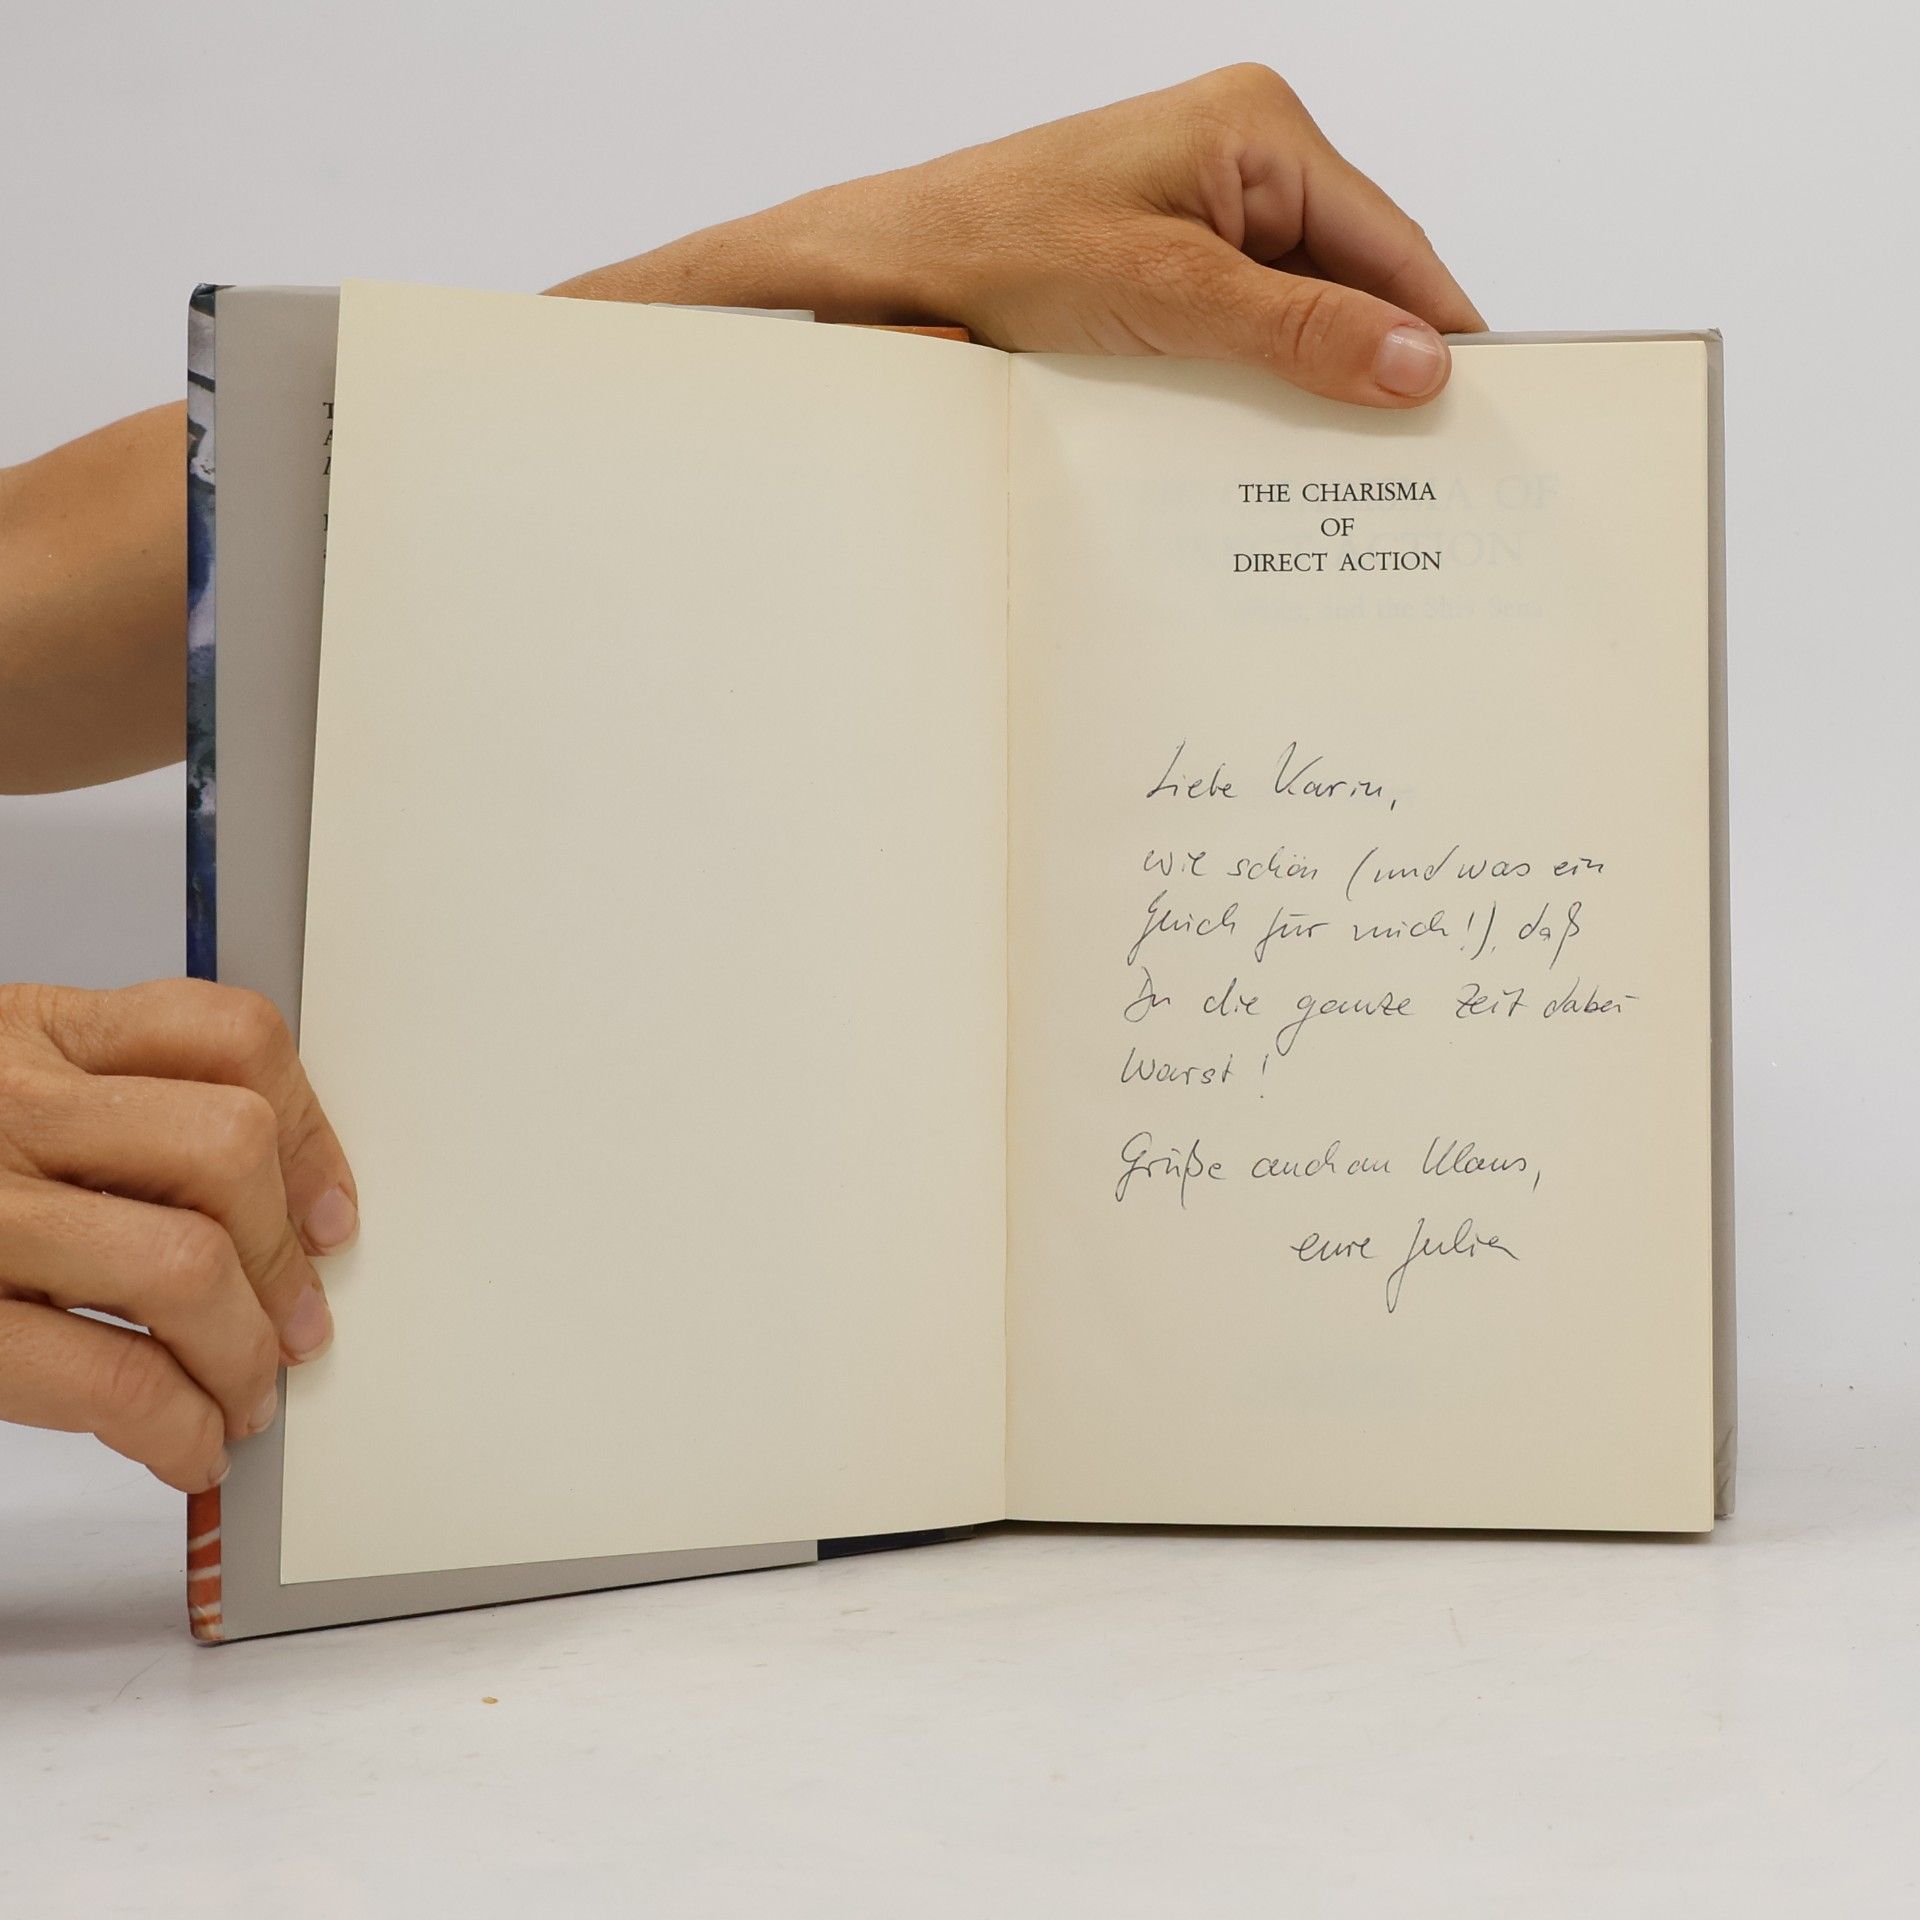 THE CHARISMA
OF
DIRECT ACTION
Liebe Karin,
wie schön (und was ein
für mich!), daß
Du die ganze Zeit dabei
warst!
Grüße auch an Klaus,
eure Julia